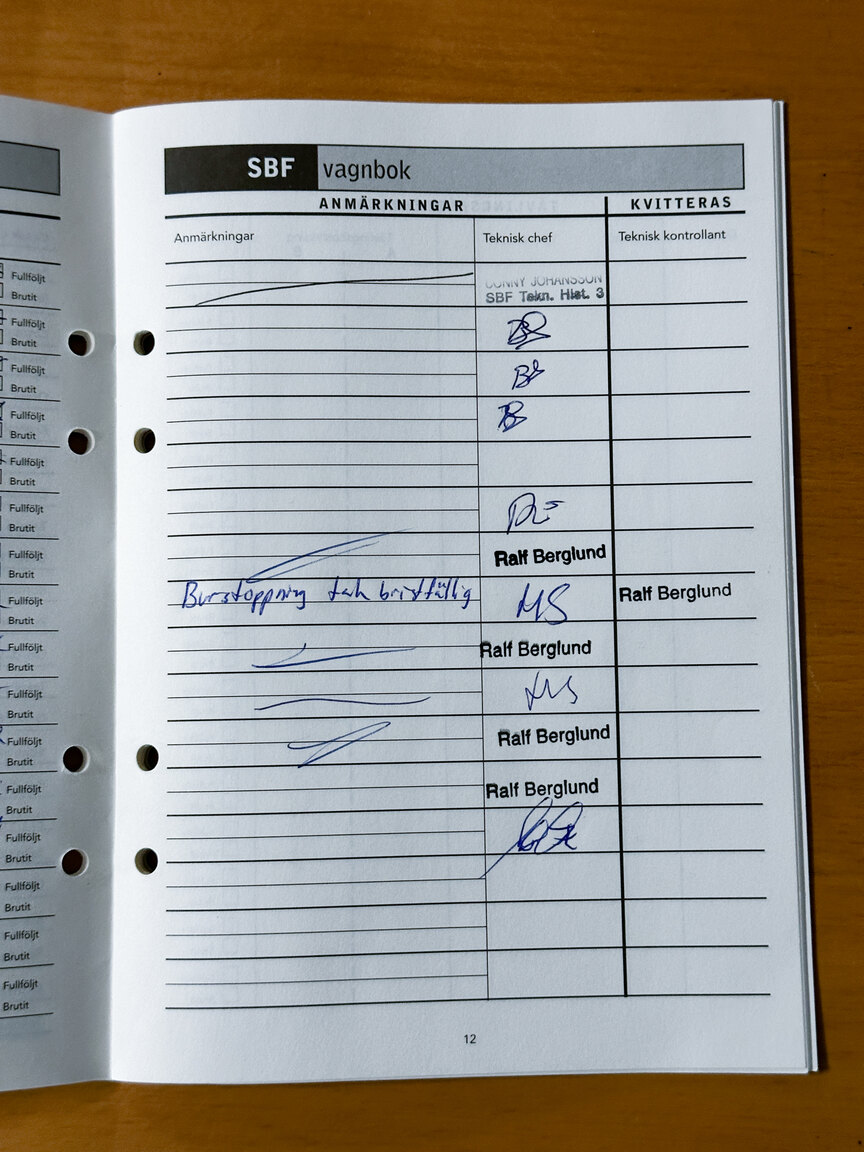 SBF vagnbok
ANMÄRKNINGAR KVITTERAS
Anmärkningar Teknisk chef Teknisk kontrollant
CONNY JOHANSSON
SBF Tekn. Hist. 3
Ralf Berglund
Burstoppning tak bristfällig MS Ralf Berglund
Ralf Berglund
MS
Ralf Berglund
Ralf Berglund
12
Fullföljt
Brutit
Fullföljt
Brutit
Fullföljt
Brutit
Fullföljt
Brutit
Fullföljt
Brutit
Fullföljt
Brutit
Fullföljt
Brutit
Fullföljt
Brutit
Fullföljt
Brutit
Fullföljt
Brutit
Fullföljt
Brutit
Fullföljt
Brutit
Fullföljt
Brutit
Fullföljt
Brutit
Fullföljt
Brutit
Fullföljt
Brutit